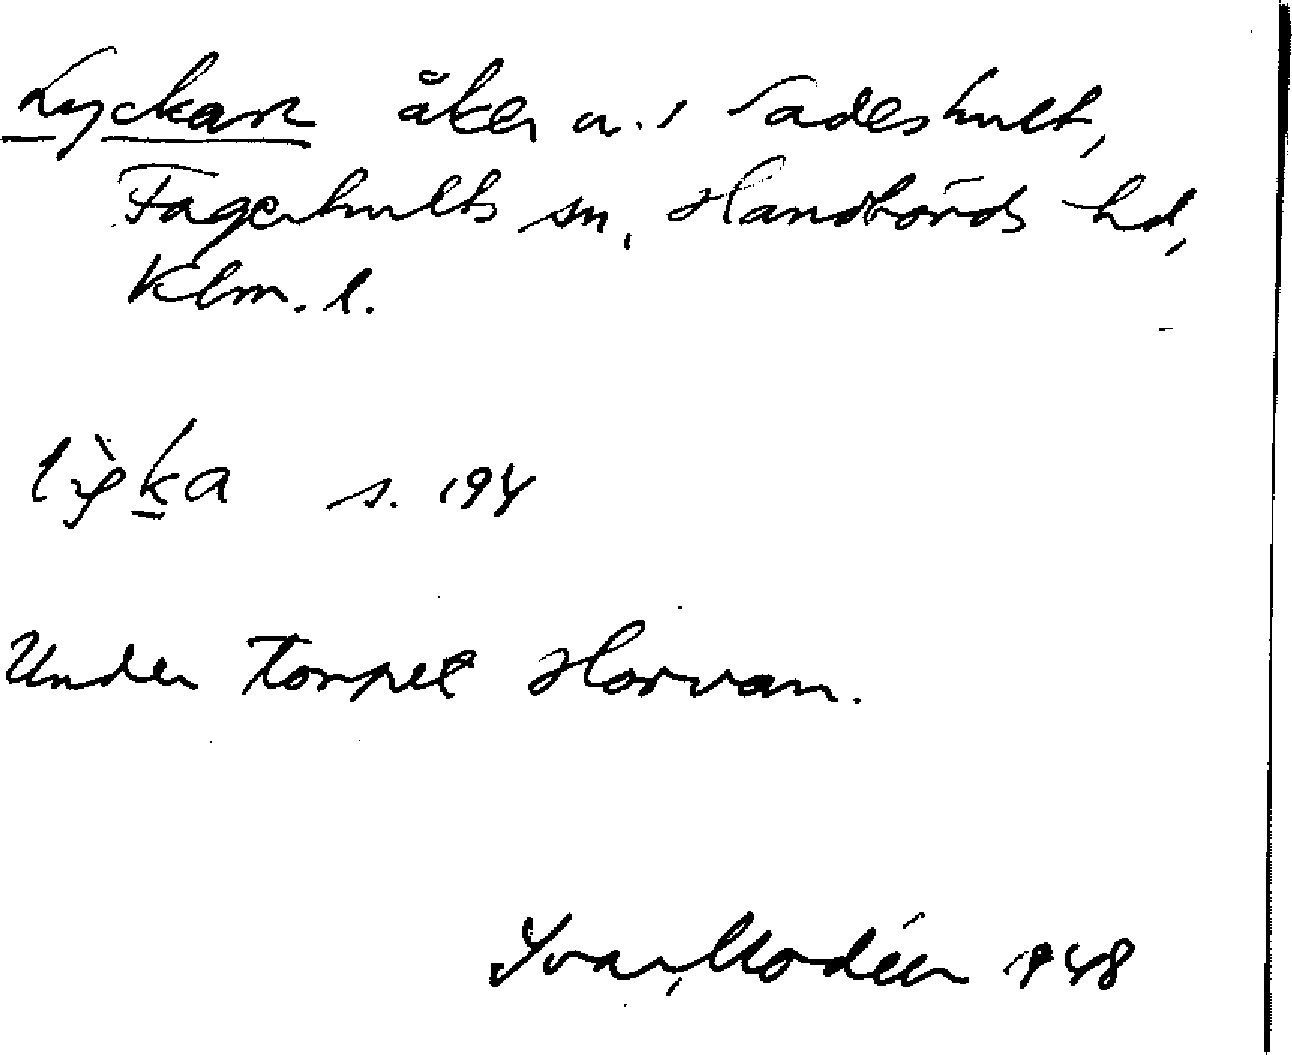 Lyckan åker a. i Fadeshult,
Fagerhults sn, Handbörds hd,
Klm. l.
lỳka s. 194
Under torpet Horvan.
Ivar Modéer 1948